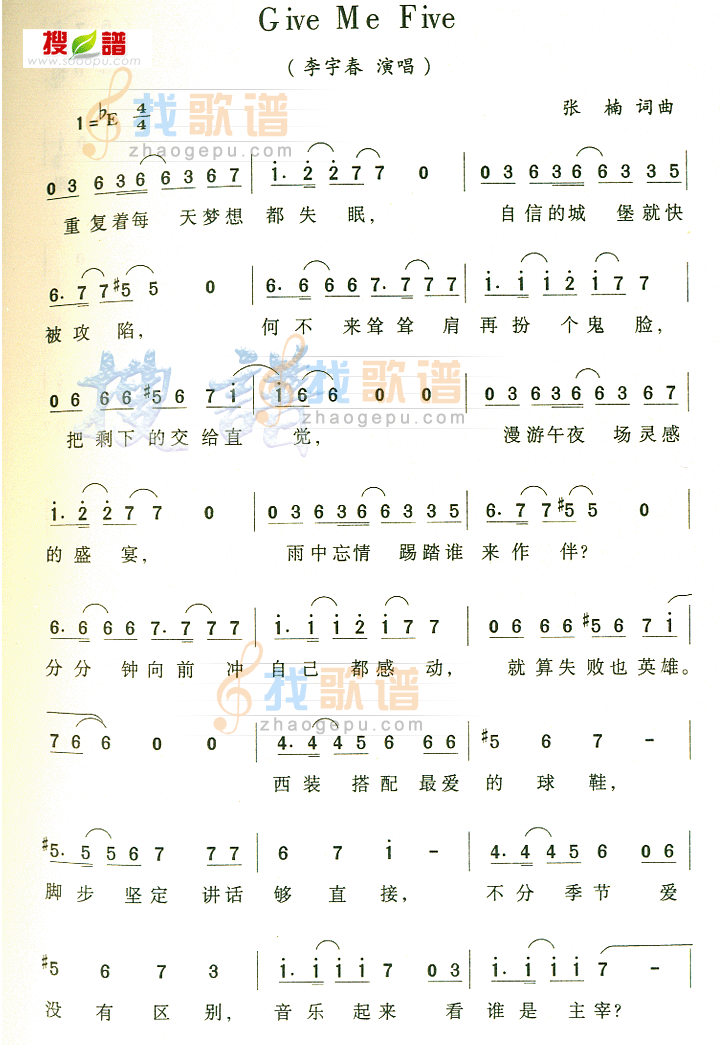 Give Me Five
搜 谱
www.sooopu.com
(李宇春 演唱)
1=♭E 4/4
张 楠 词曲
找歌谱
zhaogepu.com
0 3 6 3 6 6 3 6 7 | i· 2 2 7 7 0 | 0 3 6 3 6 6 3 3 5
重复着每 天梦想 都 失 眠, 自信的城 堡就快
6· 7 7 #5 5 0 | 6· 6 6 6 7· 7 7 7 | i· i i 2 i 7 7
被 攻 陷, 何 不 来 耸 耸 肩 再 扮 个 鬼 脸,
0 6 6 6 #5 6 7 i | i 6 6 0 0 | 0 3 6 3 6 6 3 6 7
把 剩下 的 交 给 直 觉, 漫游午夜 场灵感
搜 谱
找歌谱
zhaogepu.com
i· 2 2 7 7 0 | 0 3 6 3 6 6 3 3 5 | 6· 7 7 #5 5 0
的 盛 宴, 雨中忘情 踢踏谁 来 作 伴?
6· 6 6 6 7· 7 7 7 | i· i i 2 i 7 7 | 0 6 6 6 #5 6 7 i
分 分 钟 向 前 冲 自 己 都 感 动, 就 算 失 败 也 英 雄。
找歌谱
zhaogepu.com
7 6 6 0 0 | 4· 4 4 5 6 6 6 | #5 6 7 -
西 装 搭 配 最 爱 的 球 鞋,
#5· 5 5 6 7 7 7 | 6 7 i - | 4· 4 4 5 6 0 6
脚 步 坚 定 讲 话 够 直 接, 不 分 季 节 爱
#5 6 7 3 | i· i i i 7 0 3 | i· i i i 7 -
没 有 区 别, 音 乐 起 来 看 谁 是 主 宰?